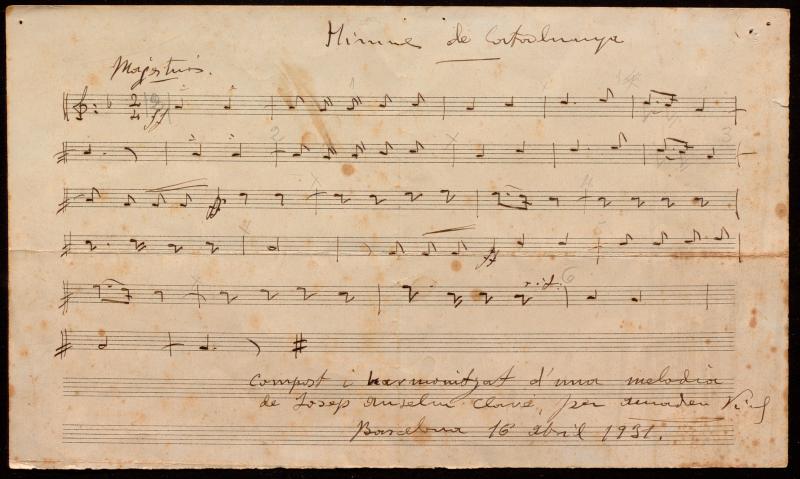 Himne de Catalunya
Majestuós.
ff
ff
ff
rit.
compost i harmonitzat d'una melodia
de Josep Anselm Clavé, per Amadeu
Barcelona 16 abril 1931.